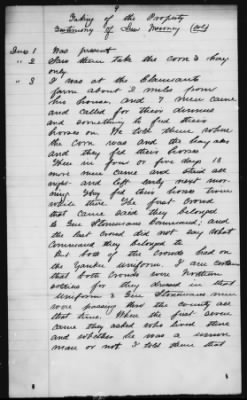 9
Taking of the Property
Testimony of Geo (Col)
Ques 1 Was present
" 2 Saw them take the corn & hay
only.
" 3 I was at the Claimants
farm about 2 miles from
his house, and 7 men came
and called for their dinners
and something to feed their
horses on. We told them where
the corn was and the hay also
and they fed their horses.
Then in four or five days 18
more men came and staid all
night and left early next mor-
ning. They fed their horses twice
while there. The first crowd
that came said they belonged
to Gen Stonemans Command, and
the last crowd did not say what
Command they belonged to
But both of the crowds had on
the Yankee uniform. I am certain
that both crowds were Northern
soldiers for they dressed in that
uniform & Gen Stonemans men
were passing thro the county at
that time. When the first seven
came they asked who lived there
and whether he was a union
man or not I told them that